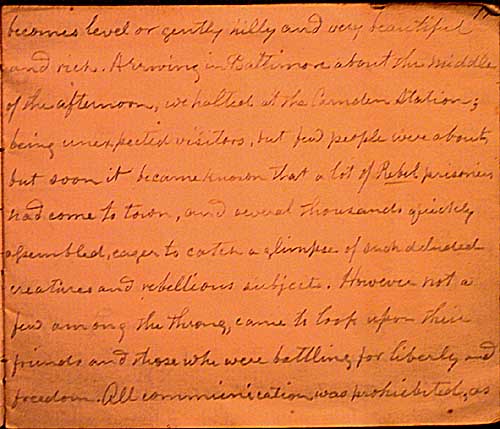 becomes level or gently hilly and very beautiful
and rich. Arriving in Baltimore about the middle
of the afternoon, we halted at the Camden Station;
being unexpected visitors, but few people were about,
but soon it became known that a lot of Rebel prisoners
had come to town, and several thousands quickly
assembled, eager to catch a glimpse of such deluded
creatures and rebellious subjects. However not a
few among the throng, came to look upon their
friends and those who were battling for liberty and
freedom. All communication was prohibited, as